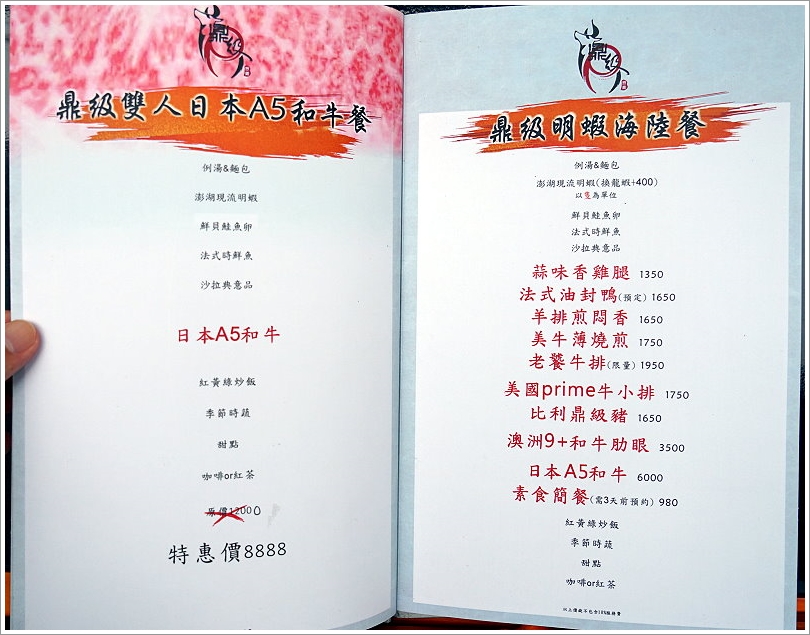 鼎級
鼎級雙人日本A5和牛餐
例湯&麵包
澎湖現流明蝦
鮮貝鮭魚卵
法式時鮮魚
沙拉與意品
日本A5和牛
紅黃綠炒飯
季節時蔬
甜點
咖啡or紅茶
原價12000
特惠價8888
鼎級
鼎級明蝦海陸餐
例湯&麵包
澎湖現流明蝦(換龍蝦+400)
以隻為單位
鮮貝鮭魚卵
法式時鮮魚
沙拉與意品
蒜味香雞腿 1350
法式油封鴨(預定) 1650
羊排煎悶香 1650
美牛薄燒煎 1750
老饕牛排(限量) 1950
美國prime牛小排 1750
比利鼎級豬 1650
澳洲9+和牛肋眼 3500
日本A5和牛 6000
素食簡餐(需3天前預約) 980
紅黃綠炒飯
季節時蔬
甜點
咖啡or紅茶
以上價格不包含10%服務費